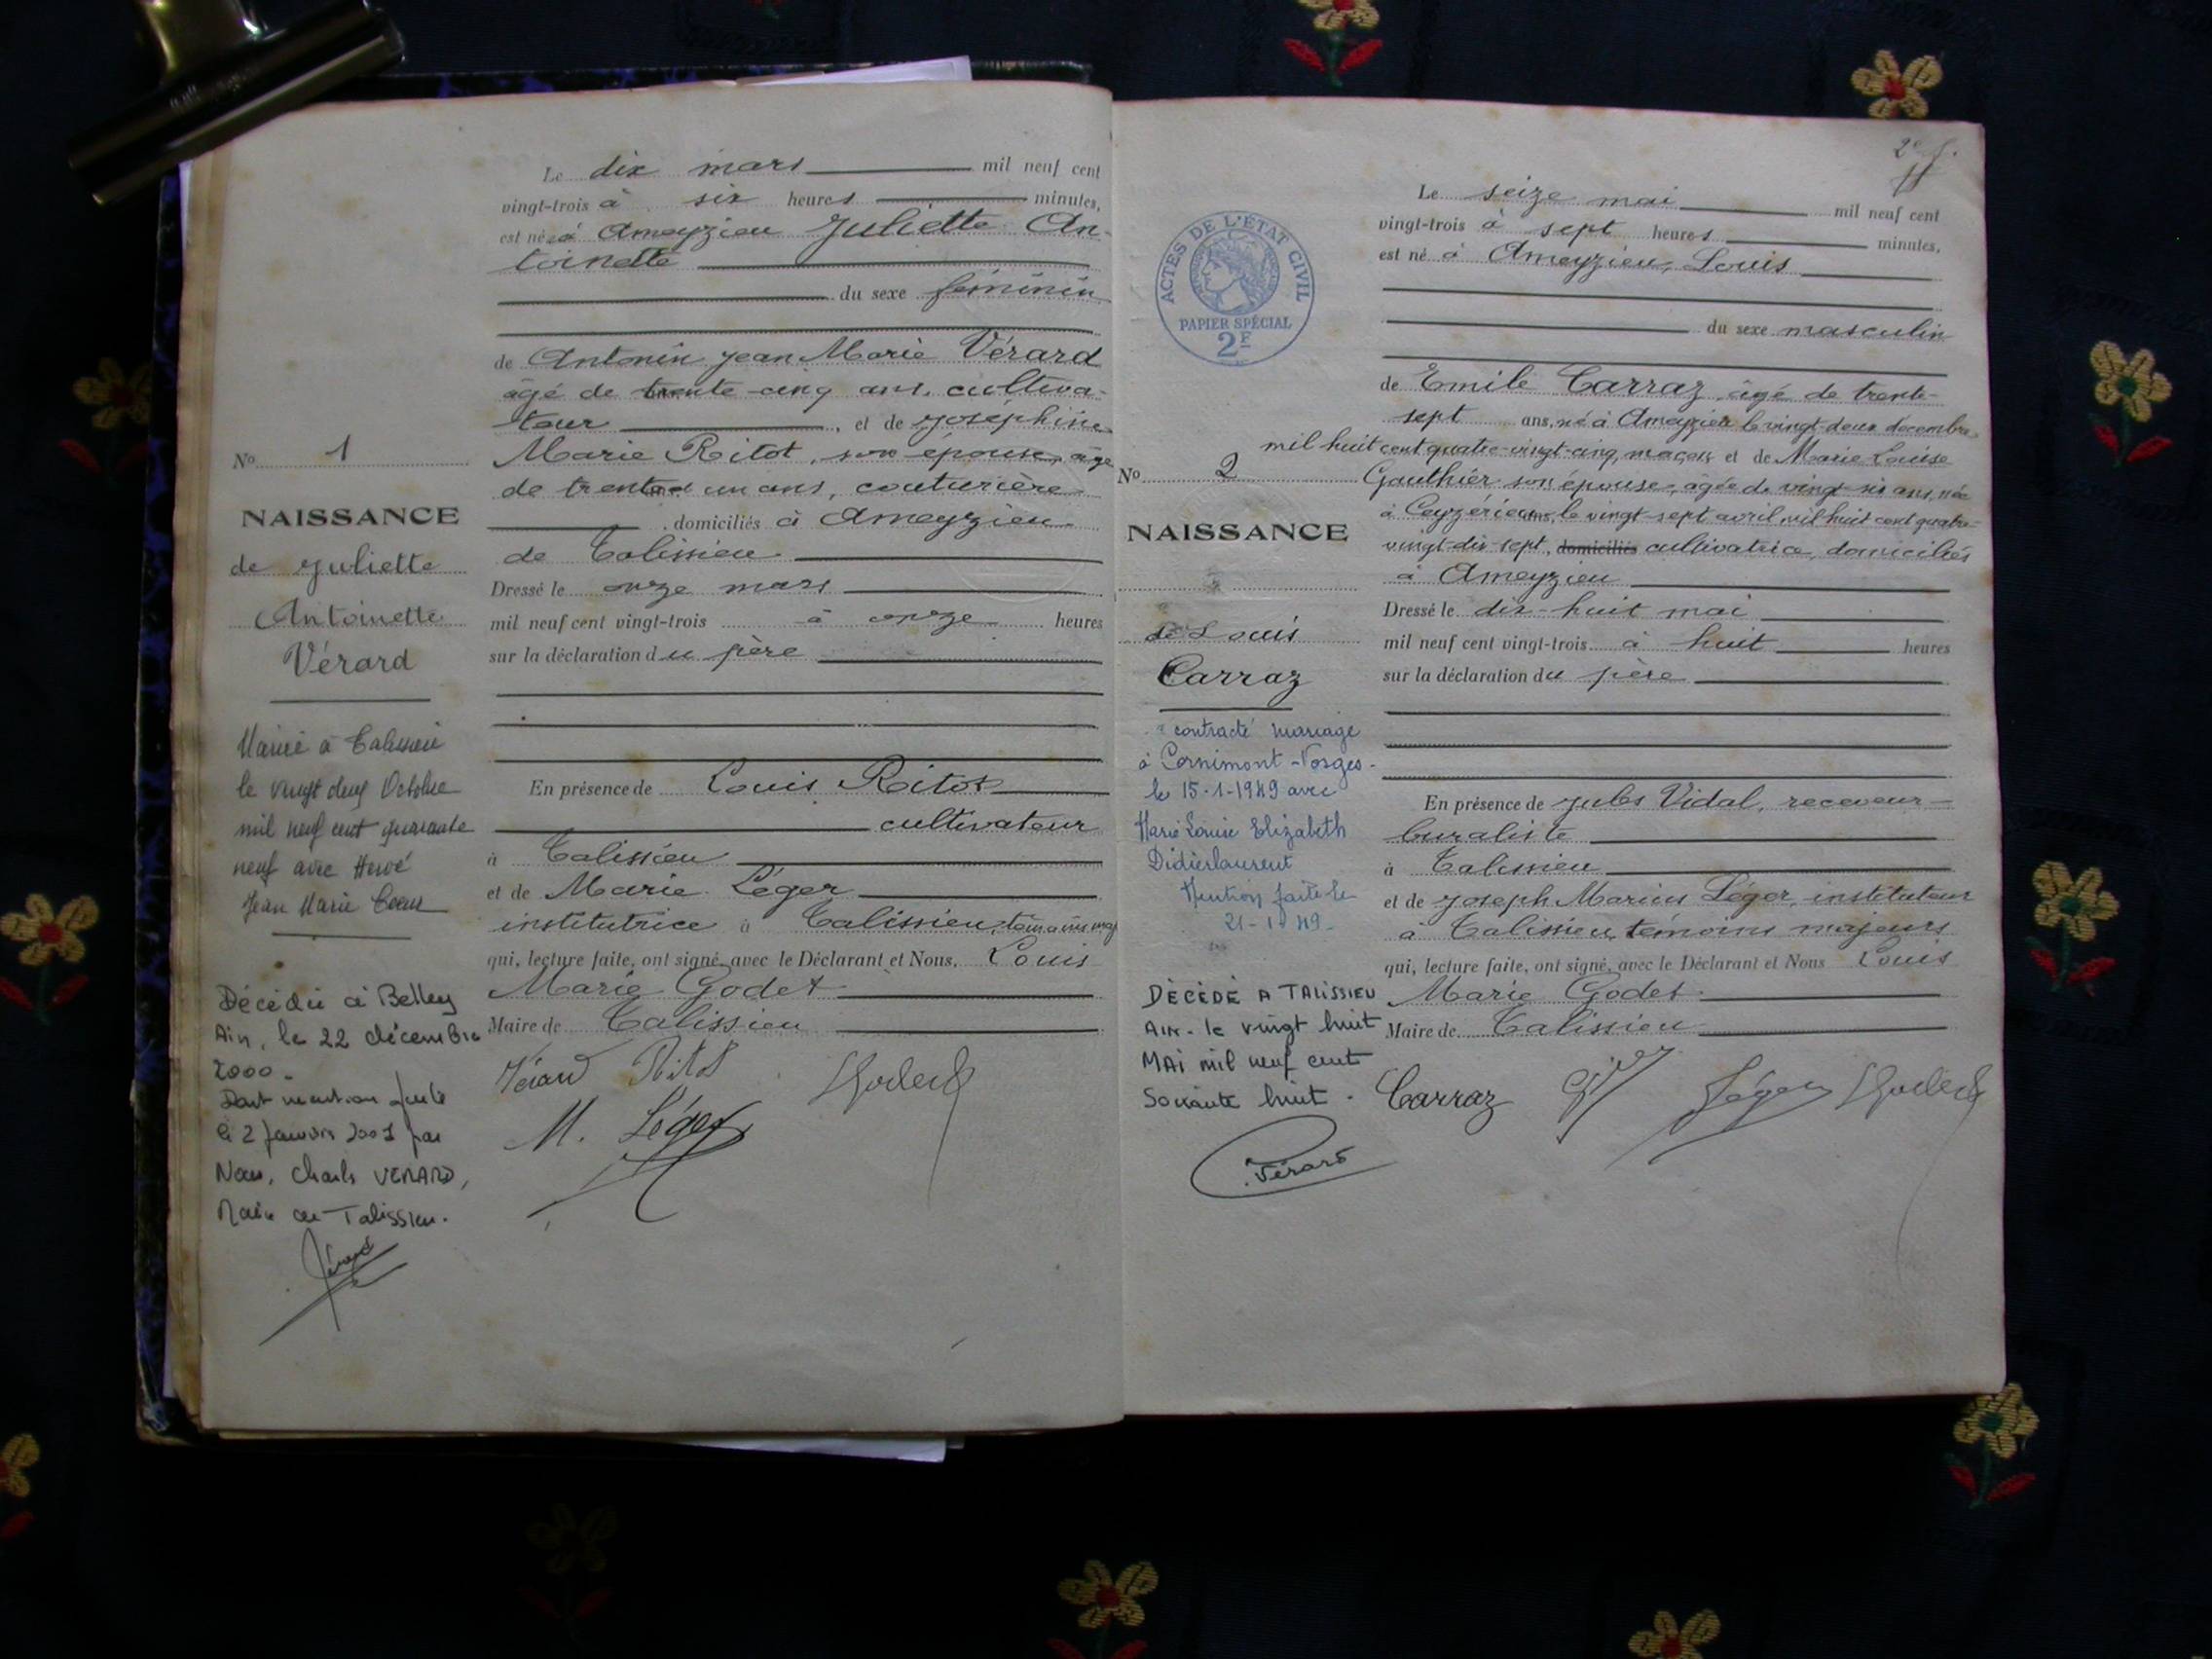 Le dix mars mil neuf cent
vingt-trois à six heures minutes,
est née à Ameyzieu Juliette An-
toinette
du sexe féminin
de Antonin Jean Marie Vérard
âgé de trente-cinq ans, cultiva-
teur , et de Joséphine
Marie Ritot, son épouse, âgée
de trente un ans, couturière
, domiciliés à Ameyzieu
de Talissieu
Dressé le onze mars
mil neuf cent vingt-trois à onze heures
sur la déclaration du père
En présence de Louis Ritot
cultivateur
à Talissieu
et de Marie Léger
institutrice à Talissieu, témoins maj
qui, lecture faite, ont signé avec le Déclarant et Nous, Louis
Marie Godet
Maire de Talissieu
Vérard Ritot
M. Léger
No 1
NAISSANCE
de Juliette
Antoinette
Vérard
Mariée à Talissieu
le vingt deux Octobre
mil neuf cent quarante
neuf avec Hervé
Jean Marie
Décédée à Belley
Ain, le 22 décembre
2000.
Dont mention faite
le 2 Janvier 2001 par
Nous, Charles VERARD,
Maire de Talissieu.
Vérard
2e f.
ACTES DE L'ÉTAT CIVIL
PAPIER SPÉCIAL
2F
Le seize mai mil neuf cent
vingt-trois à sept heures minutes,
est né à Ameyzieu, Louis
du sexe masculin
de Emile Carraz, âgé de trente-
sept ans, né à Ameyzieu le vingt-deux décembre
mil huit cent quatre-vingt-cinq, maçon et de Marie Louise
Gauthier son épouse, agée de vingt-six ans, née
à Ceyzérieu, le vingt-sept avril mil huit cent quatre-
vingt-dix-sept, domiciliés cultivatrice, domiciliés
à Ameyzieu
Dressé le dix-huit mai
mil neuf cent vingt-trois à huit heures
sur la déclaration du père
En présence de Jules Vidal, receveur-
buraliste
à Talissieu
et de Joseph Marius Léger, instituteur
à Talissieu, témoins majeurs
qui, lecture faite, ont signé, avec le Déclarant et Nous Louis
Marie Godet
Maire de Talissieu
Carraz Léger
No 2
NAISSANCE
de Louis
Carraz
a contracté mariage
à Cornimont-Vosges-
le 15-1-1949 avec
Marie Louise Elizabeth
Didierlaurent
Mention faite le
21-1-1949-
DÉCÉDÉ A TALISSIEU
AIN. le vingt huit
MAI mil neuf cent
Soixante huit.
Vérard